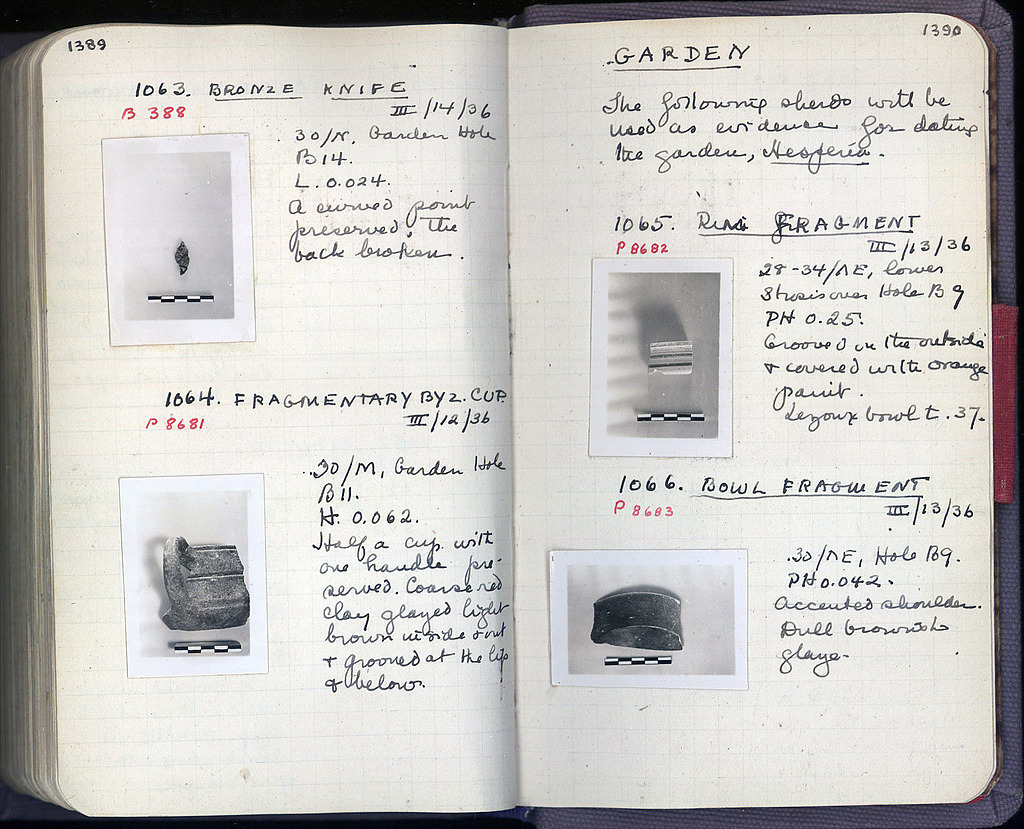 1389
1063. BRONZE KNIFE
B 388
III/14/36
30/N, Garden Hole
B14.
L. 0.024.
A curved point
preserved, the
back broken.
1064. FRAGMENTARY BYZ. CUP
P 8681
III/12/36
30/M, Garden Hole
B11.
H. 0.062.
Half a cup with
one handle pre-
served. Coarse red
clay glazed light
brown inside & out
& grooved at the lip
& below.
1390
GARDEN
The following sherds will be
used as evidence for dating
the garden, Hesperia.
1065. RIM FRAGMENT
P 8682
III/13/36
28-34/ΛE, lower
Strosis over Hole B9
PH 0.25.
Grooved on the outside
& covered with orange
paint.
Lezoux bowl t. 37.
1066. BOWL FRAGMENT
P 8683
III/13/36
30/ΛE, Hole B9.
PH 0.042.
Accented shoulder.
Dull brownish
glaze.